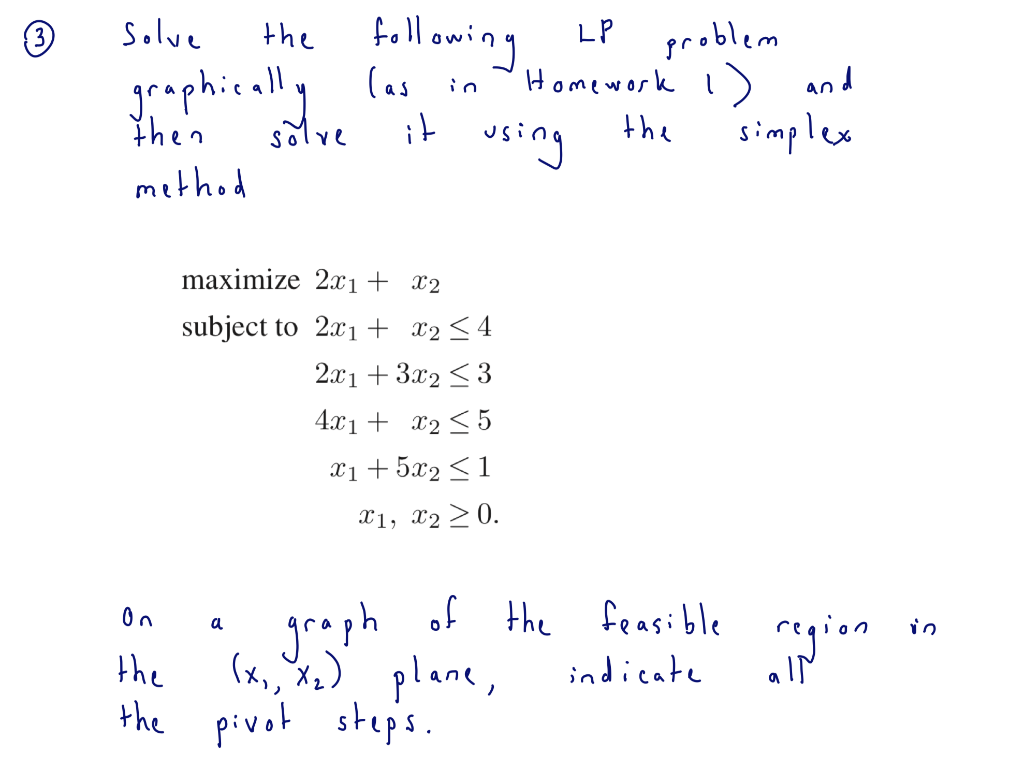 ③ Solve the following LP problem
graphically (as in Homework 1) and
then solve it using the simplex
method
maximize 2x₁ + x₂
subject to 2x₁ + x₂ ≤ 4
2x₁ + 3x₂ ≤ 3
4x₁ + x₂ ≤ 5
x₁ + 5x₂ ≤ 1
x₁, x₂ ≥ 0.
On a graph of the feasible region in
the (x₁, x₂) plane, indicate all
the pivot steps.